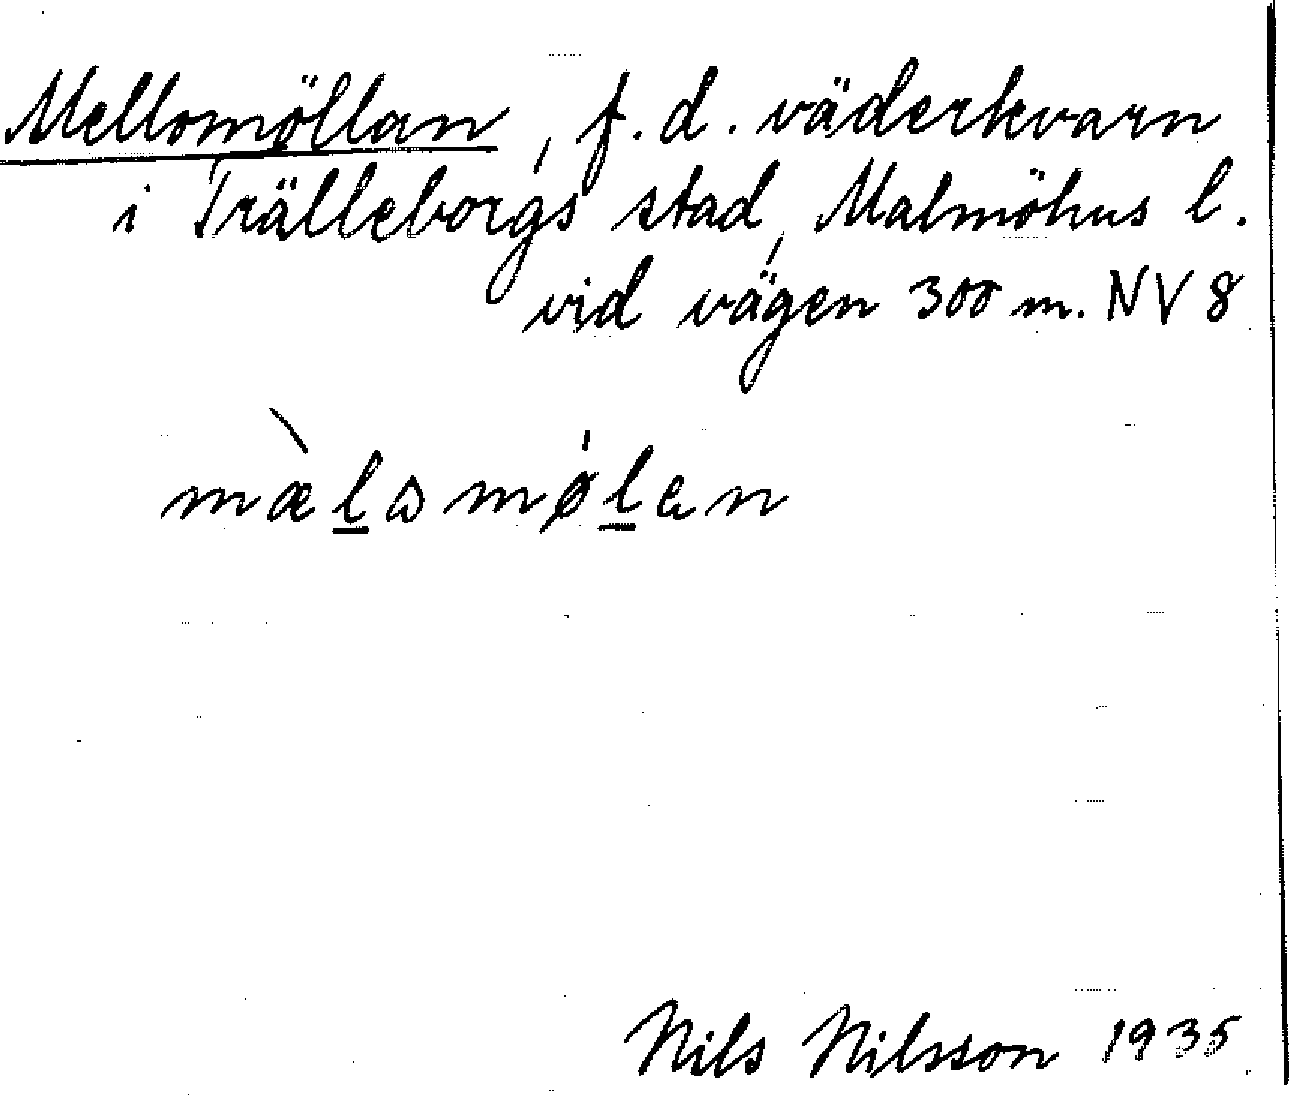 Mellomöllan, f.d. väderkvarn
i Trälleborgs stad, Malmöhus l.
vid vägen 300 m. NV 8
mæ̀lɷmø̍lɐn
Nils Nilsson 1935